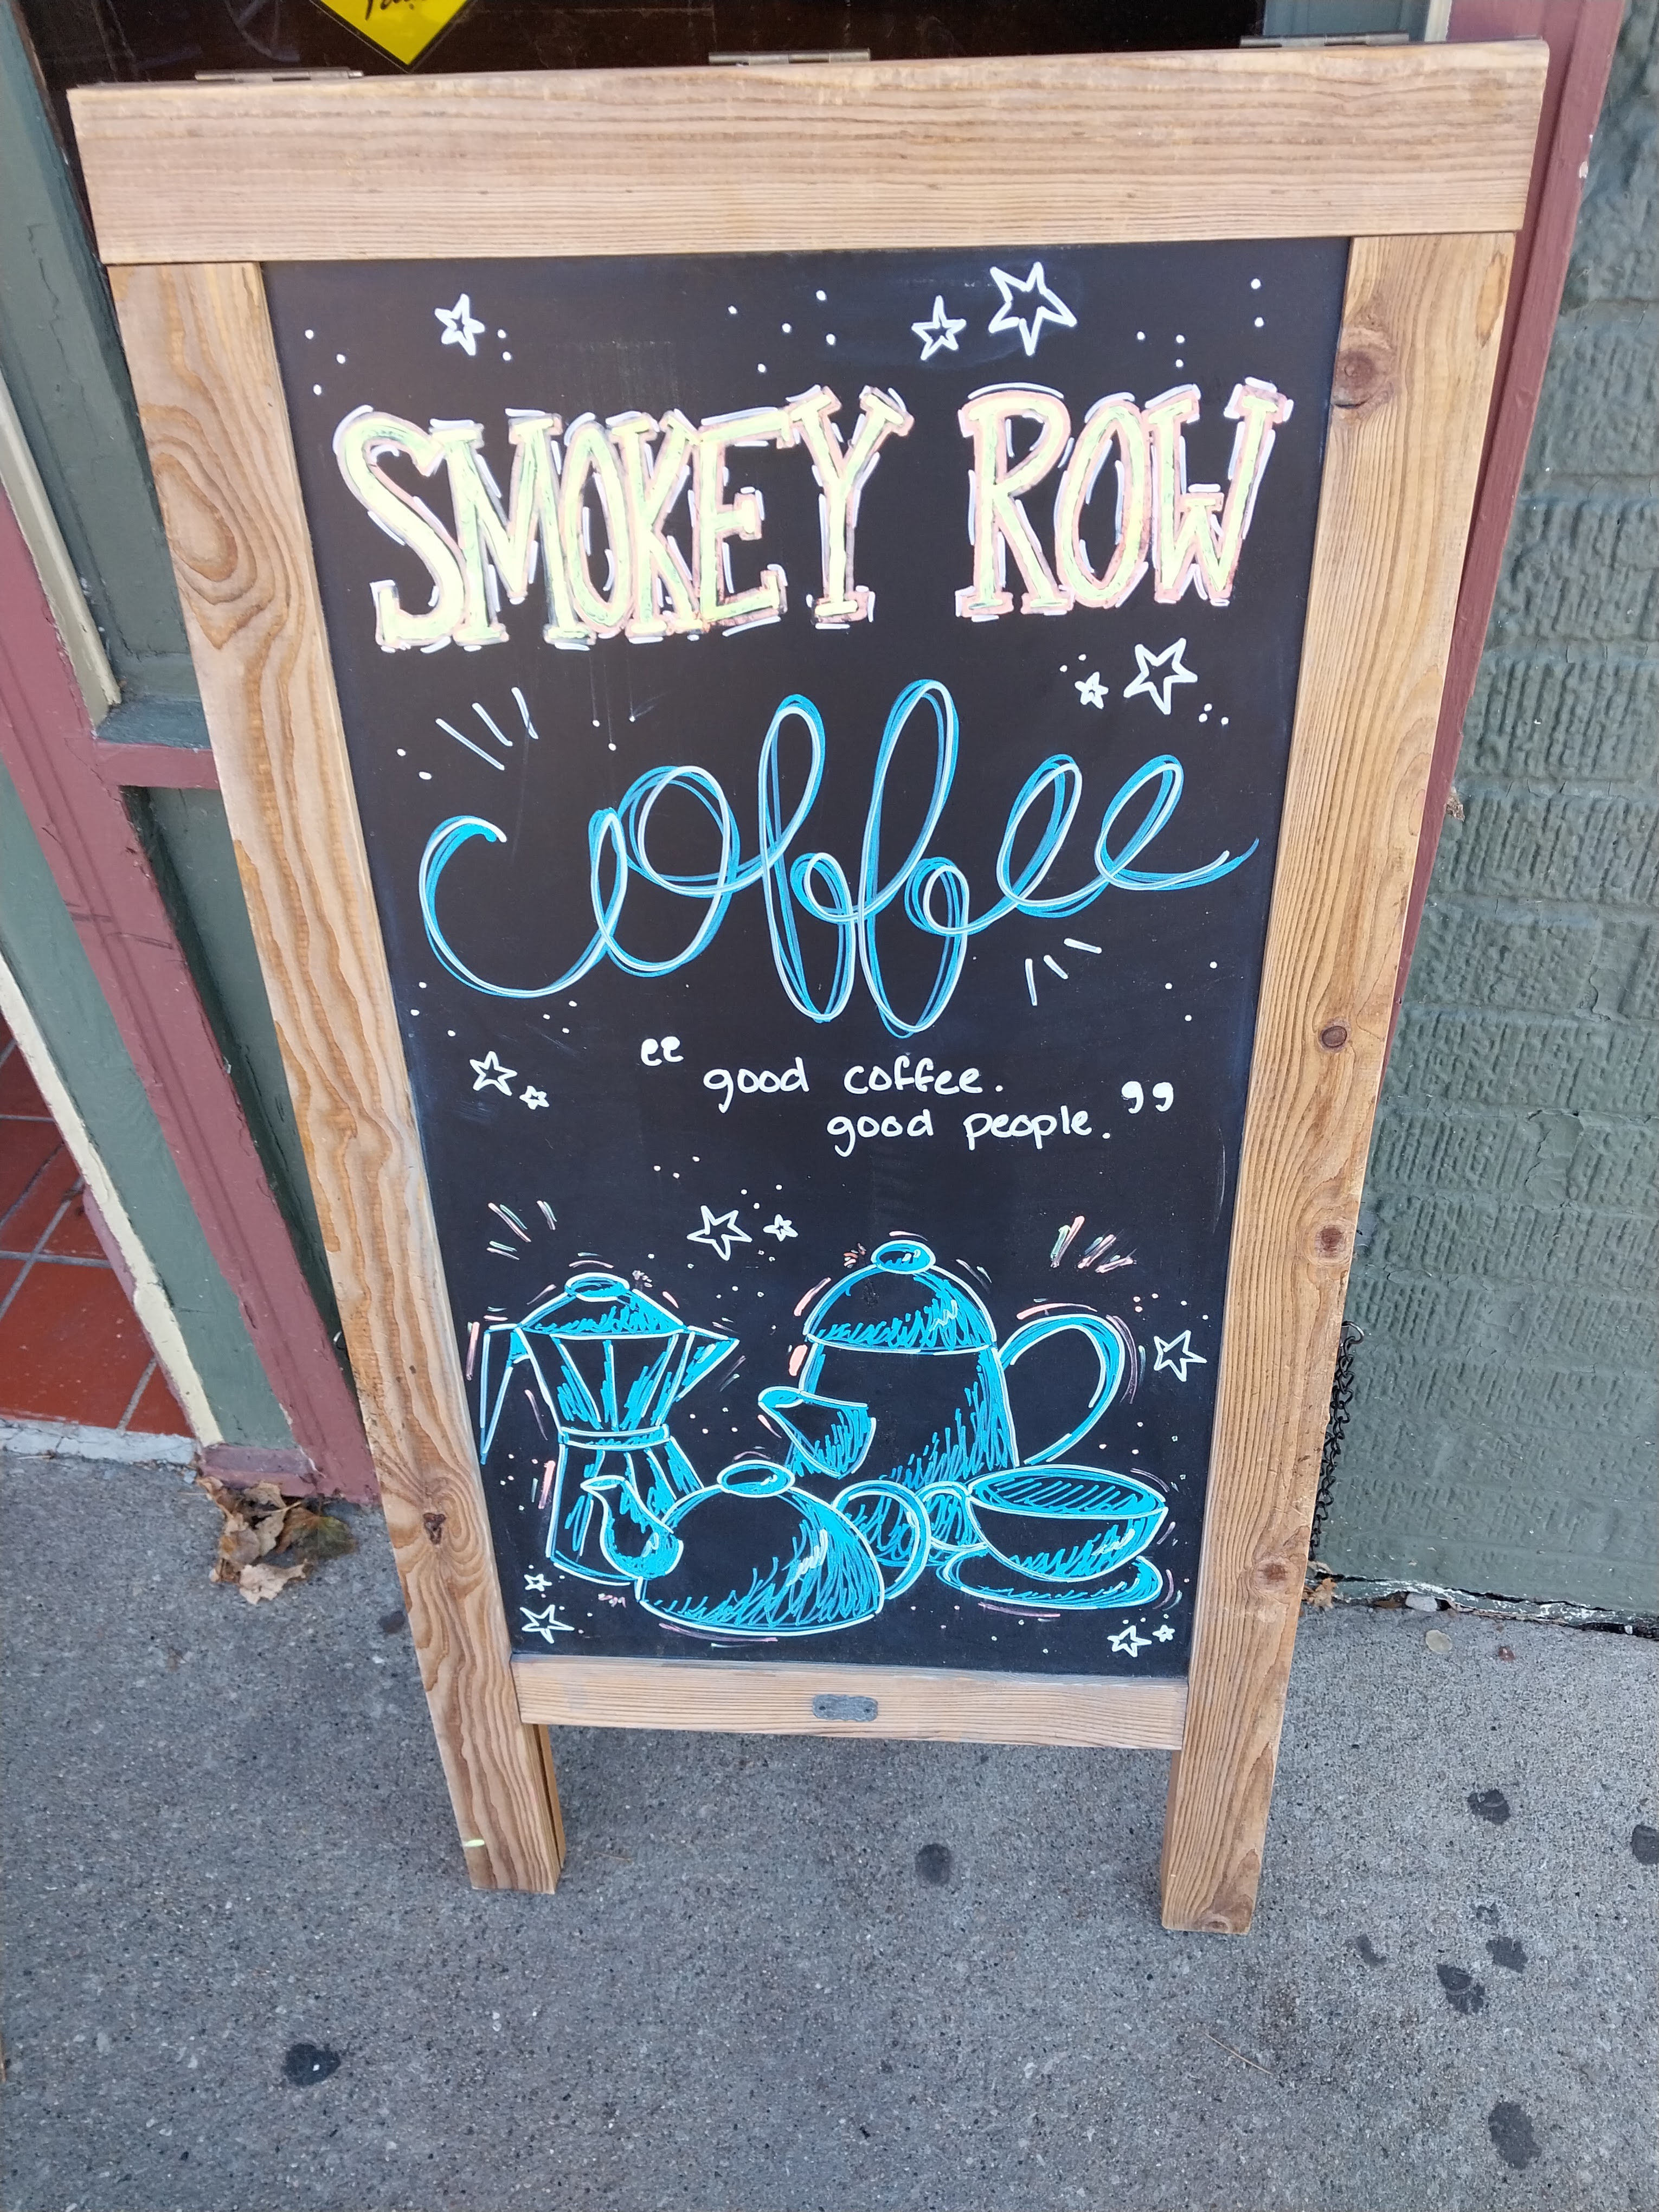 SMOKEY ROW
coffee
“good coffee.
good people.”